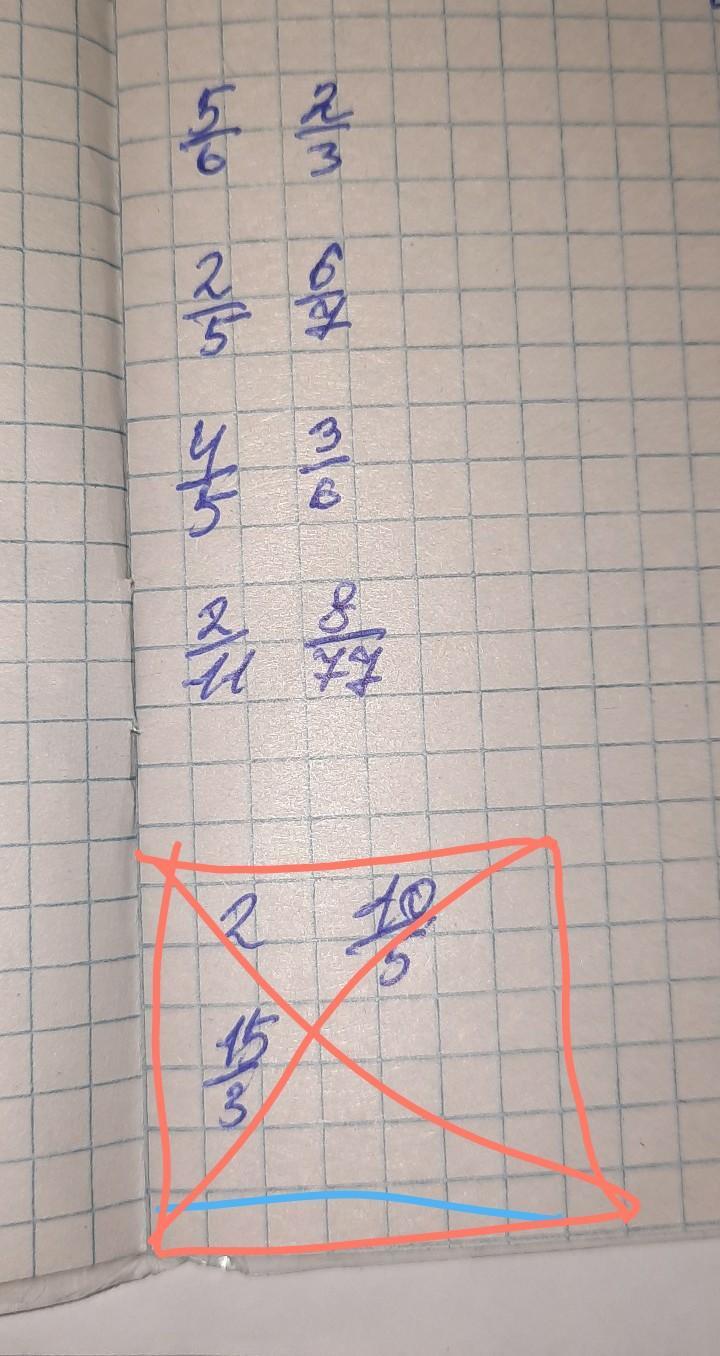 5/6 2/3
2/5 6/7
4/5 3/6
2/11 8/77
2 10/5
15/3